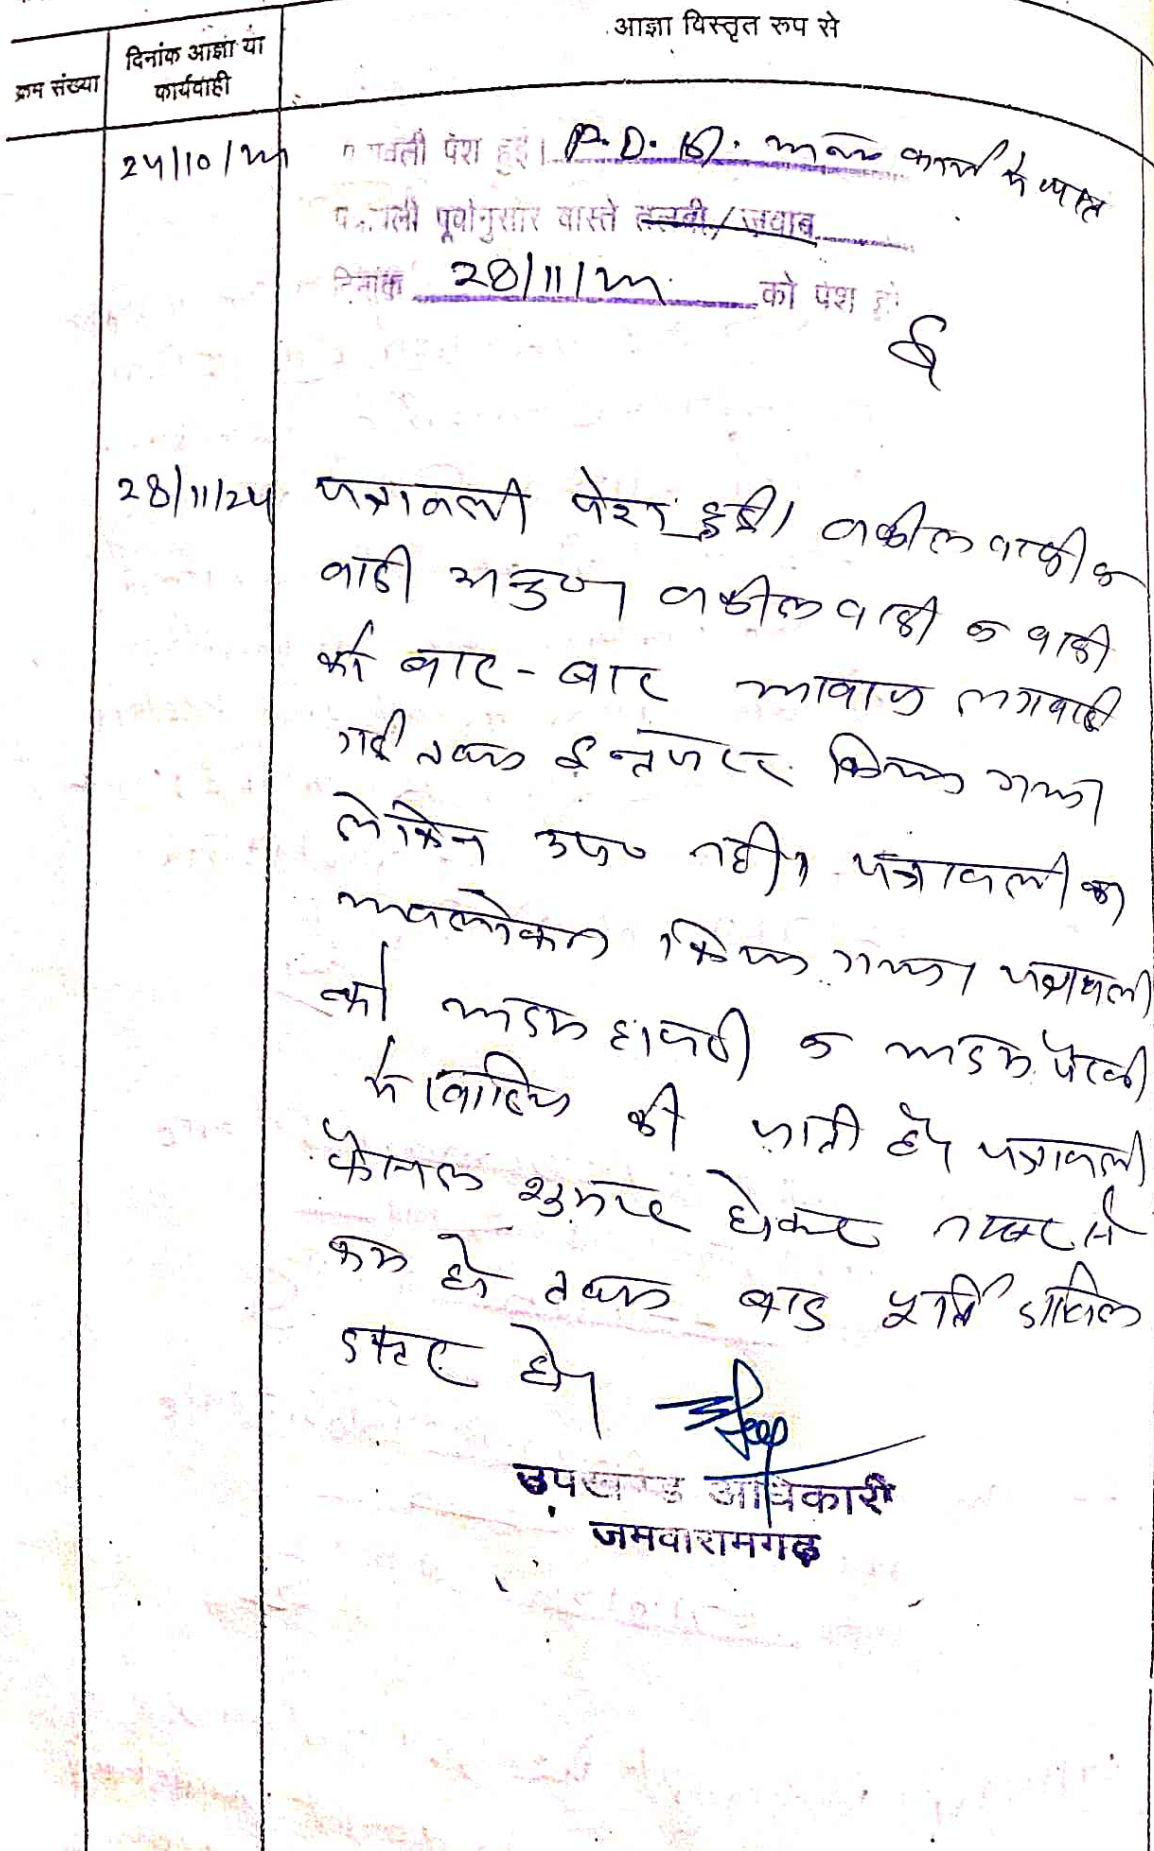 आज्ञा विस्तृत रूप से
क्रम संख्या
दिनांक आज्ञा या
कार्यवाही
पत्रावली पेश हुई। P.O. कार्य में व्यस्त
पत्रावली पूर्वानुसार वास्ते तलबी/जवाब
दिनांक 28/11/24 को पेश हो
28/11/24 पत्रावली पेश हुई। वकील वादी व
वादी अनु०। वकील वादी व वादी
को बार-बार आवाज लगवाई
गई तथा इन्तजार किया गया।
लेकिन उप० नहीं। पत्रावली का
अवलोकन किया गया। पत्रावली
को अदम हाजरी व अदम पैरवी
में खारिज की जाती है। पत्रावली
फैसल शुमार होकर नम्बर से
कम हो तथा बाद पूर्ति दाखिल
दफ्तर हो।
उपखण्ड अधिकारी
जमवारामगढ़